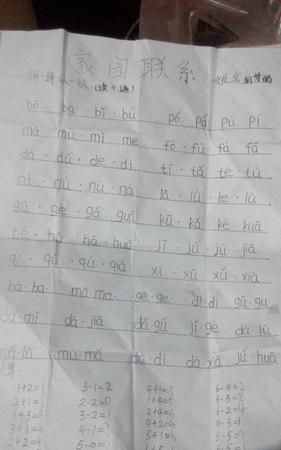 家园联系
一、拼一拼 认一认 (读十遍) 姓名
bō bā bǐ bú pó pá pù pí
má mù mǐ me fó fú fà fā
dá dú de dì tī tǎ tè tù
nǐ nú nǚ ná lā lù le lǜ
gā gē gá guā kū kǎ kè kuā
hé hǔ hā huā jī jú jù jiā
qí qǔ qù qiā xī xū xǔ xià
bà ba mā ma gē ge dì di gū gu
dà mǐ dà jiā dǎ gǔ jī gè dà lù
mǎ lù mù mǎ dà dì dà xiā jú huā
1+2= 3-1=2 4+1=5 6-4=2
2+1= 2-2=0 1+4=5 5-3=2
1+3=4 3-2=1 2+4=6 6-2=4
3+1= 4-1= 4+2=6 4-3=1
2+2= 5-0= 5+1=6 5-5=0